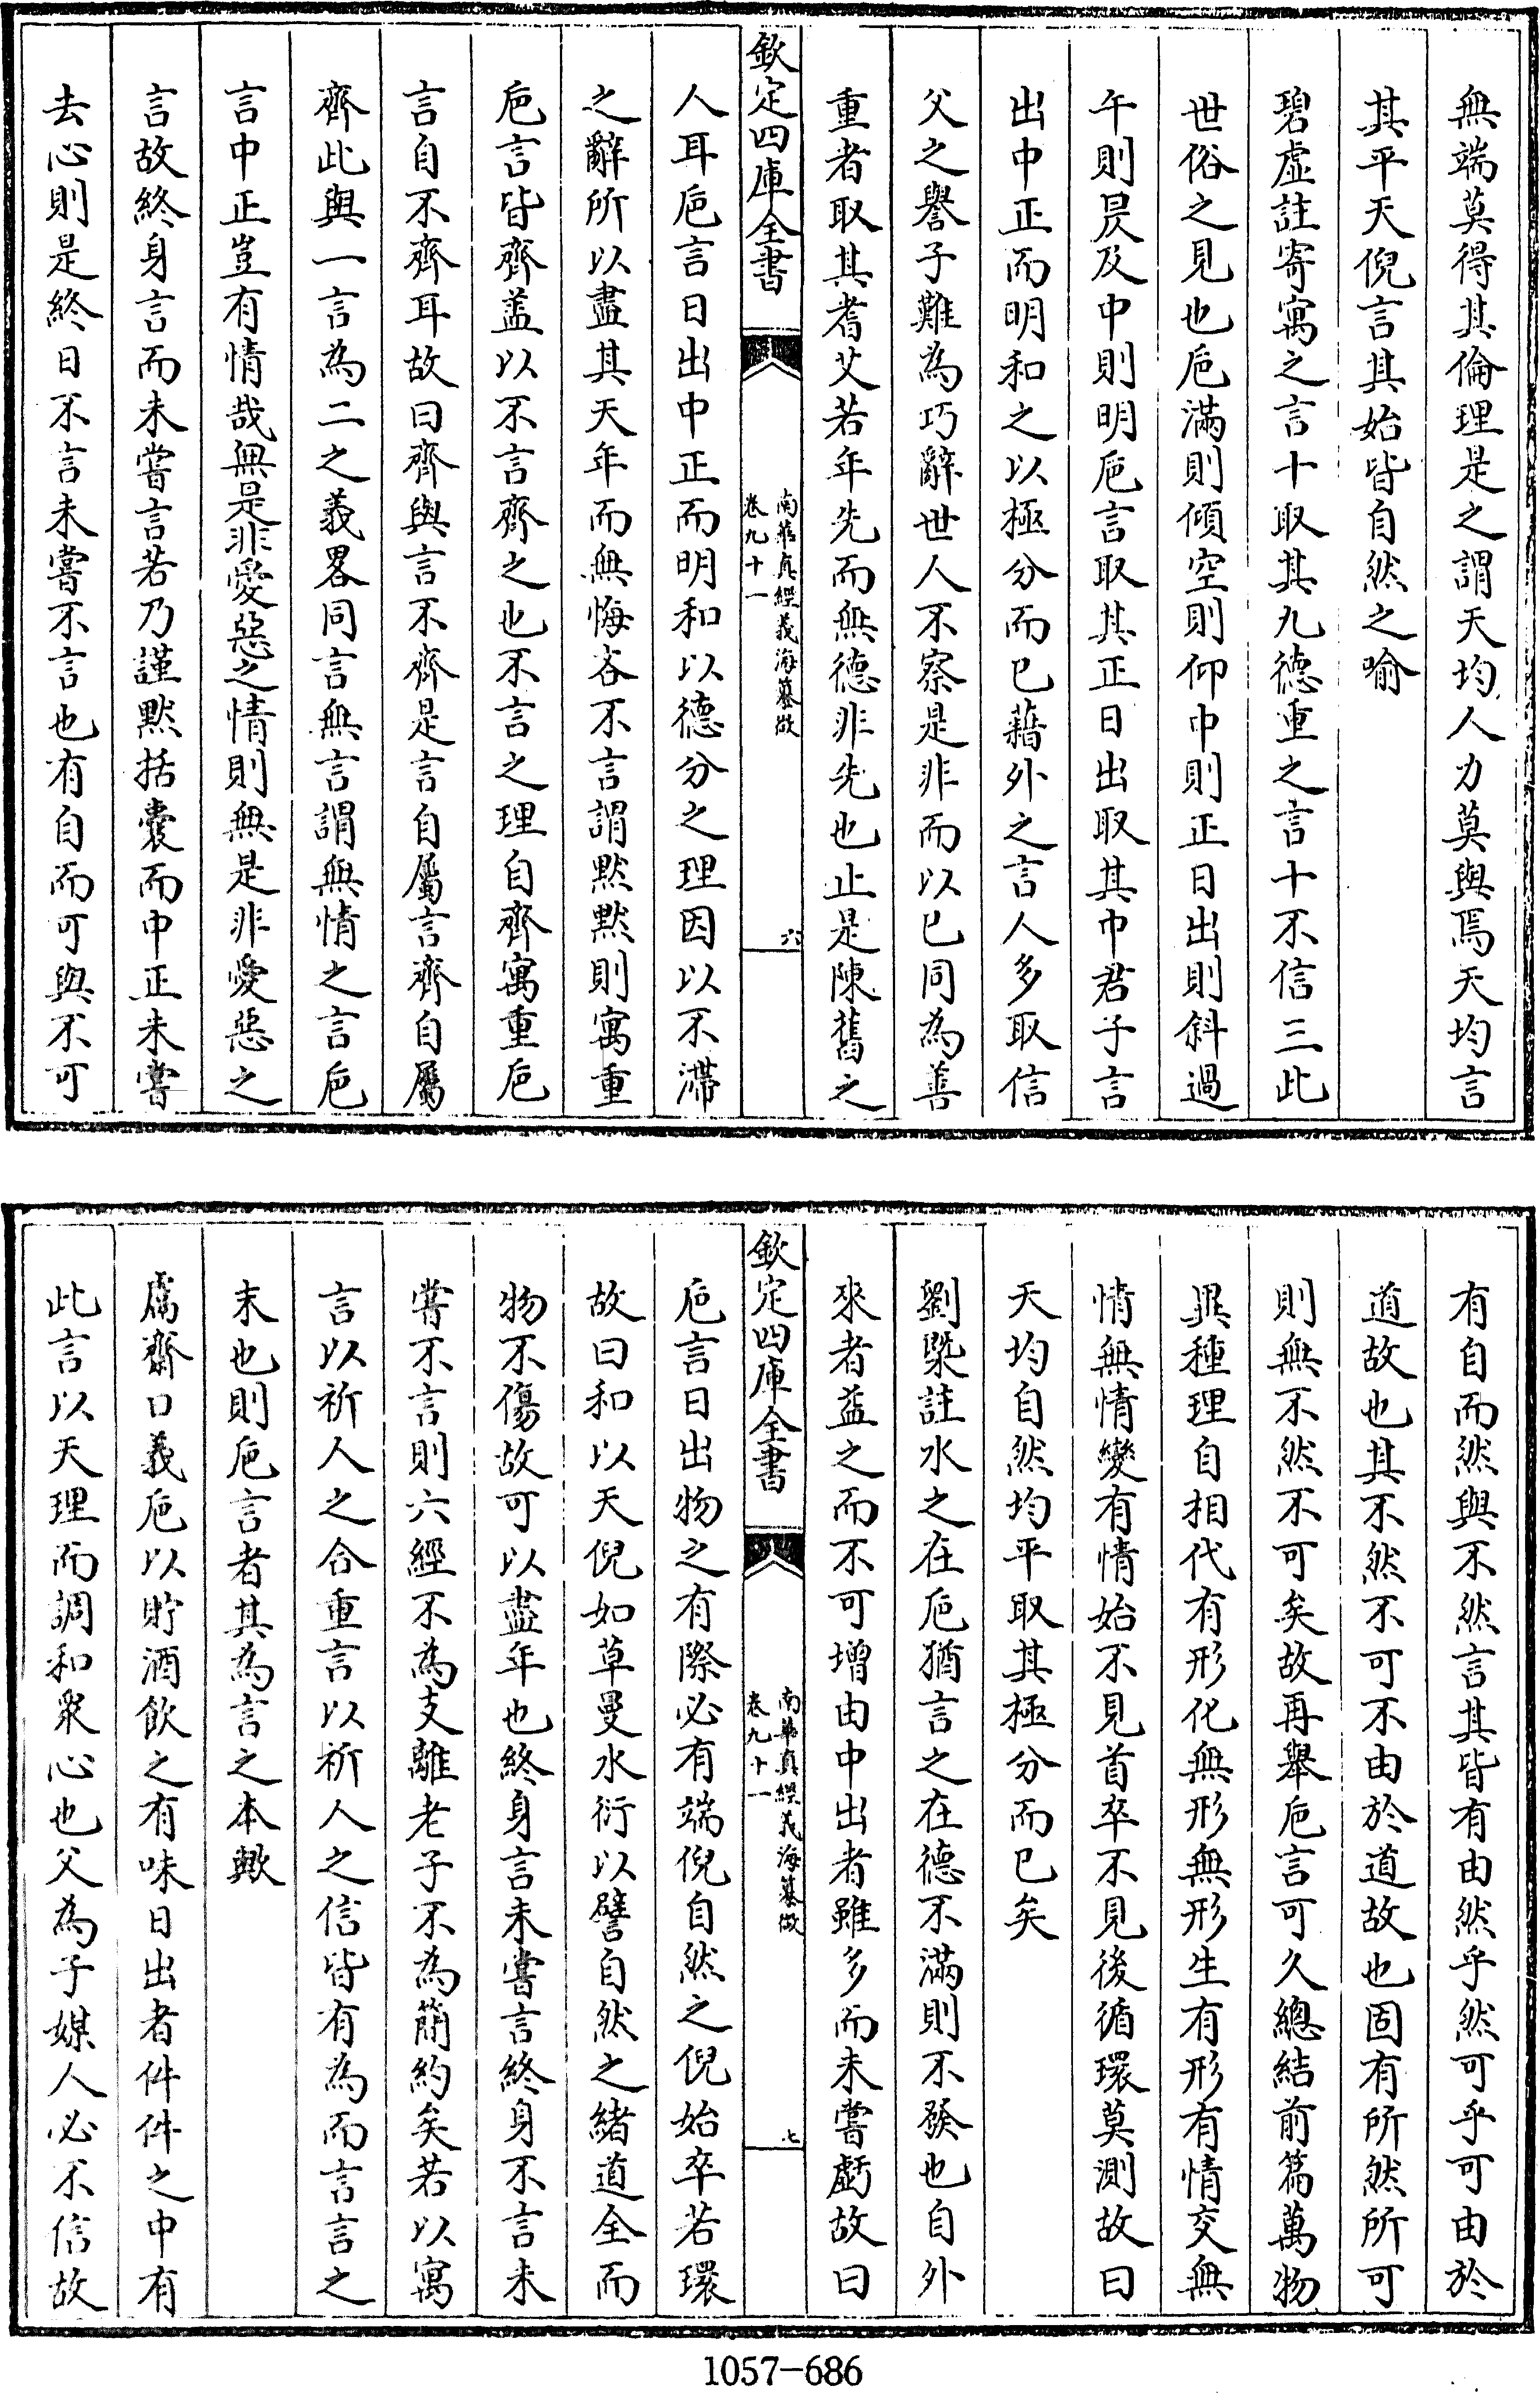 無端莫得其倫理是之謂天均人力莫與焉天均言
其平天倪言其始皆自然之喻
碧虛註寄寓之言十取其九德重之言十不信三此
世俗之見也巵滿則傾空則仰中則正日出則斜過
午則昃及中則明巵言取其正日出取其中君子言
出中正而明和之以極分而已藉外之言人多取信
父之譽子難為巧辭世人不察是非而以已同為善
重者取其耆艾若年先而無德非先也止是陳舊之
欽定四庫全書
南華真經義海纂微
卷九十一
六
人耳巵言日出中正而明和以德分之理因以不滯
之辭所以盡其天年而無悔吝不言謂黙黙則寓重
巵言皆齊葢以不言齊之也不言之理自齊寓重巵
言自不齊耳故曰齊與言不齊是言自屬言齊自屬
齊此與一言為二之義畧同言無言謂無情之言巵
言中正豈有情哉無是非愛惡之情則無是非愛惡之
言故終身言而未嘗言若乃謹黙括囊而中正未嘗
去心則是終日不言未嘗不言也有自而可與不可
有自而然與不然言其皆有由然乎然可乎可由於
道故也其不然不可不由於道故也固有所然所可
則無不然不可矣故再舉巵言可久總結前篇萬物
異種理自相代有形化無形無形生有形有情交無
情無情變有情始不見首卒不見後循環莫測故曰
天均自然均平取其極分而已矣
劉槩註水之在巵猶言之在德不滿則不發也自外
來者益之而不可增由中出者雖多而未嘗虧故曰
欽定四庫全書
南華真經義海纂微
卷九十一
七
巵言日出物之有際必有端倪自然之倪始卒若環
故曰和以天倪如草曼水衍以譬自然之緒道全而
物不傷故可以盡年也終身言未嘗言終身不言未
嘗不言則六經不為支離老子不為簡約矣若以寓
言以祈人之合重言以祈人之信皆有為而言言之
末也則巵言者其為言之本歟
鬳齋口義巵以貯酒飲之有味日出者件件之中有
此言以天理而調和衆心也父為子媒人必不信故
1057-686